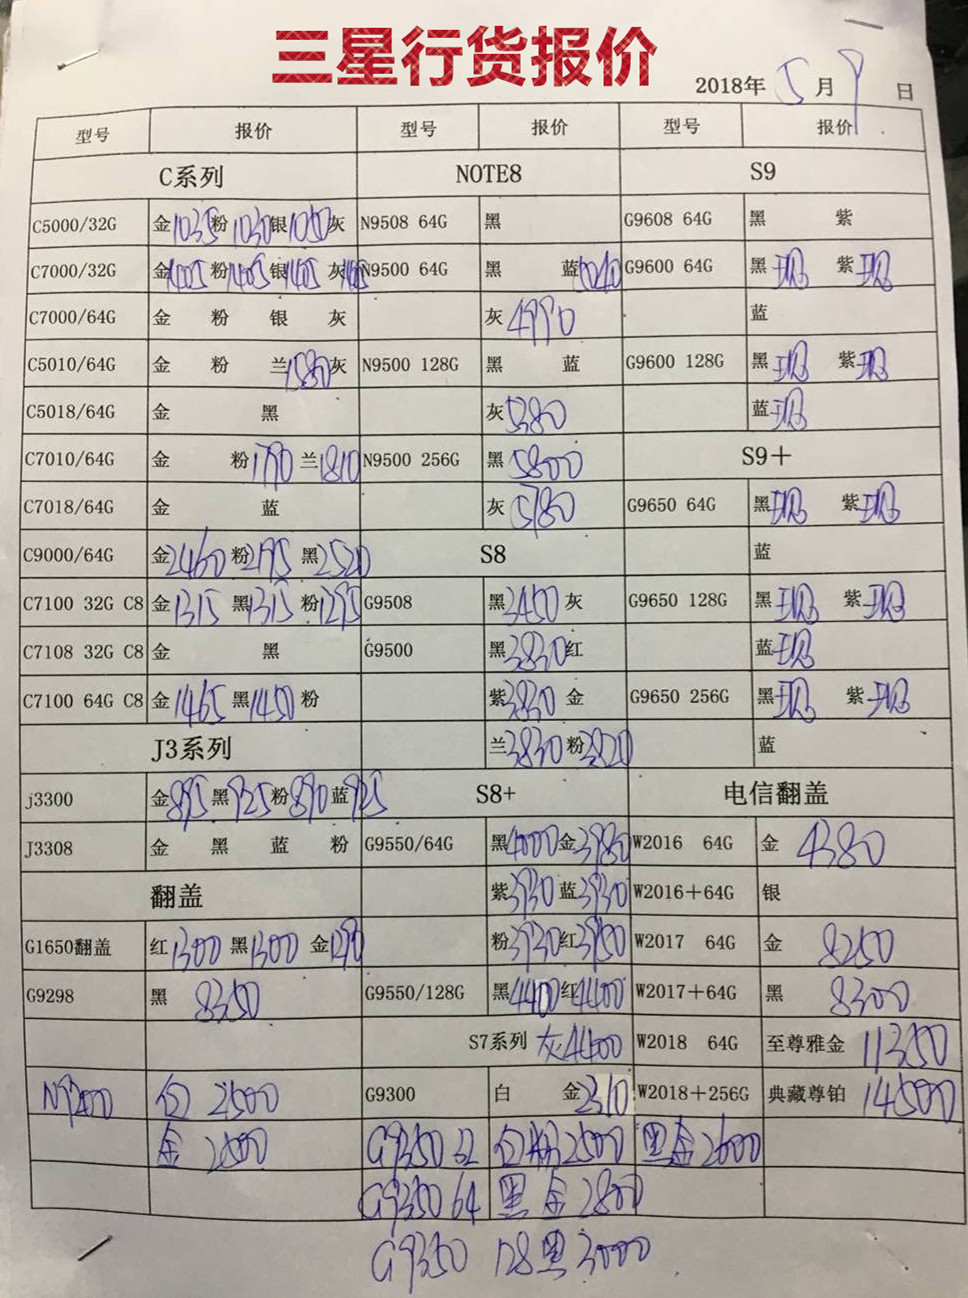 三星行货报价
2018年 5 月 9 日
型号 报价 型号 报价 型号 报价
C系列 NOTE8 S9
C5000/32G 金1035粉1030银1050灰 N9508 64G 黑 G9608 64G 黑 紫
C7000/32G 金1405粉1405银1405灰 N9500 64G 黑 蓝5040 G9600 64G 黑现 紫现
C7000/64G 金 粉 银 灰 灰4990 蓝
C5010/64G 金 粉 兰1580灰 N9500 128G 黑 蓝 G9600 128G 黑现 紫现
C5018/64G 金 黑 灰5380 蓝现
C7010/64G 金 粉1790兰1810 N9500 256G 黑5800 S9＋
C7018/64G 金 蓝 灰5780 G9650 64G 黑现 紫现
C9000/64G 金2460粉2195黑2520 S8 蓝
C7100 32G C8 金1315黑1315粉1295 G9508 黑3450灰 G9650 128G 黑现 紫现
C7108 32G C8 金 黑 G9500 黑3830红 蓝现
C7100 64G C8 金1465黑1450粉 紫3830金 G9650 256G 黑现 紫现
J3系列 兰3830粉3820 蓝
j3300 金895黑925粉890蓝925 S8+ 电信翻盖
J3308 金 黑 蓝 粉 G9550/64G 黑4000金3980 W2016 64G 金 4380
翻盖 紫3930蓝3930 W2016＋64G 银
G1650翻盖 红1300黑1300金1290 粉3930红3950 W2017 64G 金 8250
G9298 黑 8350 G9550/128G 黑4400红4400 W2017＋64G 黑 8300
S7系列 灰4400 W2018 64G 至尊雅金 11350
白 2500 G9300 白 金2310 W2018＋256G 典藏尊铂 14500
金 2500 G9350 32 白粉2500 黑金2600
G9350 64 黑 金 2800
G9350 128黑3000